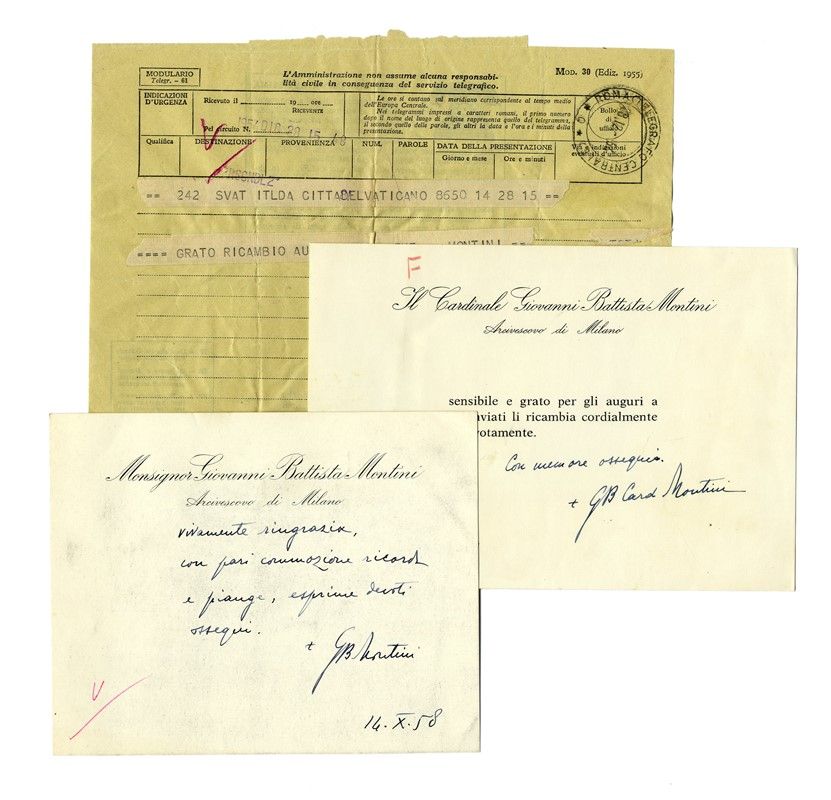 MODULARIO
Telegr. - 61
L'Amministrazione non assume alcuna responsabi-
lità civile in conseguenza del servizio telegrafico.
MOD. 30 (Ediz. 1955)
INDICAZIONI
D'URGENZA
Ricevuto il 19 ore
RICEVENTE
Pel circuito N.
Le ore si contano sul meridiano corrispondente al tempo medio
dell'Europa Centrale.
Nei telegrammi impressi a caratteri romani, il primo numero
dopo il nome del luogo di origine rappresenta quello del telegramma,
il secondo quello delle parole, gli altri la data e l'ora e i minuti della
presentazione.
Bollo
di
ufficio
ROMA TELEGRAFO CENTRALE
Qualifica
DESTINAZIONE
PROVENIENZA
NUM.
PAROLE
DATA DELLA PRESENTAZIONE
Giorno e mese
Ore e minuti
Vie e indicazioni
eventuali d'ufficio
== 242 SVAT ITLDA CITTADELVATICANO 8650 14 28 15 ==
==== GRATO RICAMBIO AU MONTINI ==
F
Il Cardinale Giovanni Battista Montini
Arcivescovo di Milano
sensibile e grato per gli auguri a
inviati li ricambia cordialmente
votamente.
Con memore ossequio.
+ GB Card Montini
Monsignor Giovanni Battista Montini
Arcivescovo di Milano
vivamente ringrazia,
con pari commozione ricorda
e piange, esprime devoti
ossequi.
+ GB Montini
V
14. X. 58